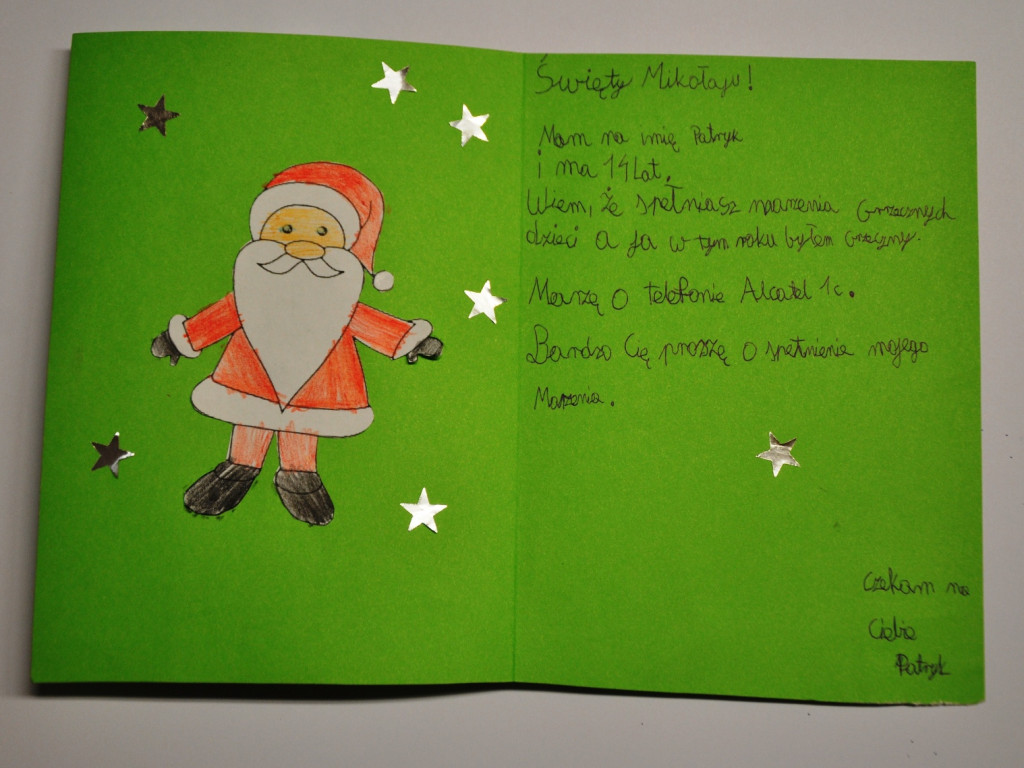 Święty Mikołaju!
Mam na imię Patryk
i ma 14 Lat.
Wiem, że spełniasz marzenia Grzecznych
dzieci a ja w tym roku byłem Grzeczny.
Marzę o telefonie Alcatel 1c.
Bardzo Cię proszę o spełnienie mojego
Marzenia.
Czekam na
Ciebie
Patryk